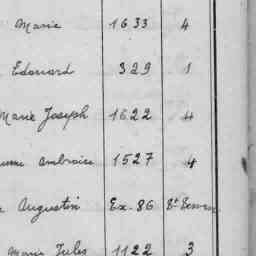 Marie 1633 4
Edouard 329 1
Marie Joseph 1622 4
Ambroise 1527 4
Augustin Ex. 86 8t
Marie Jules 1122 3